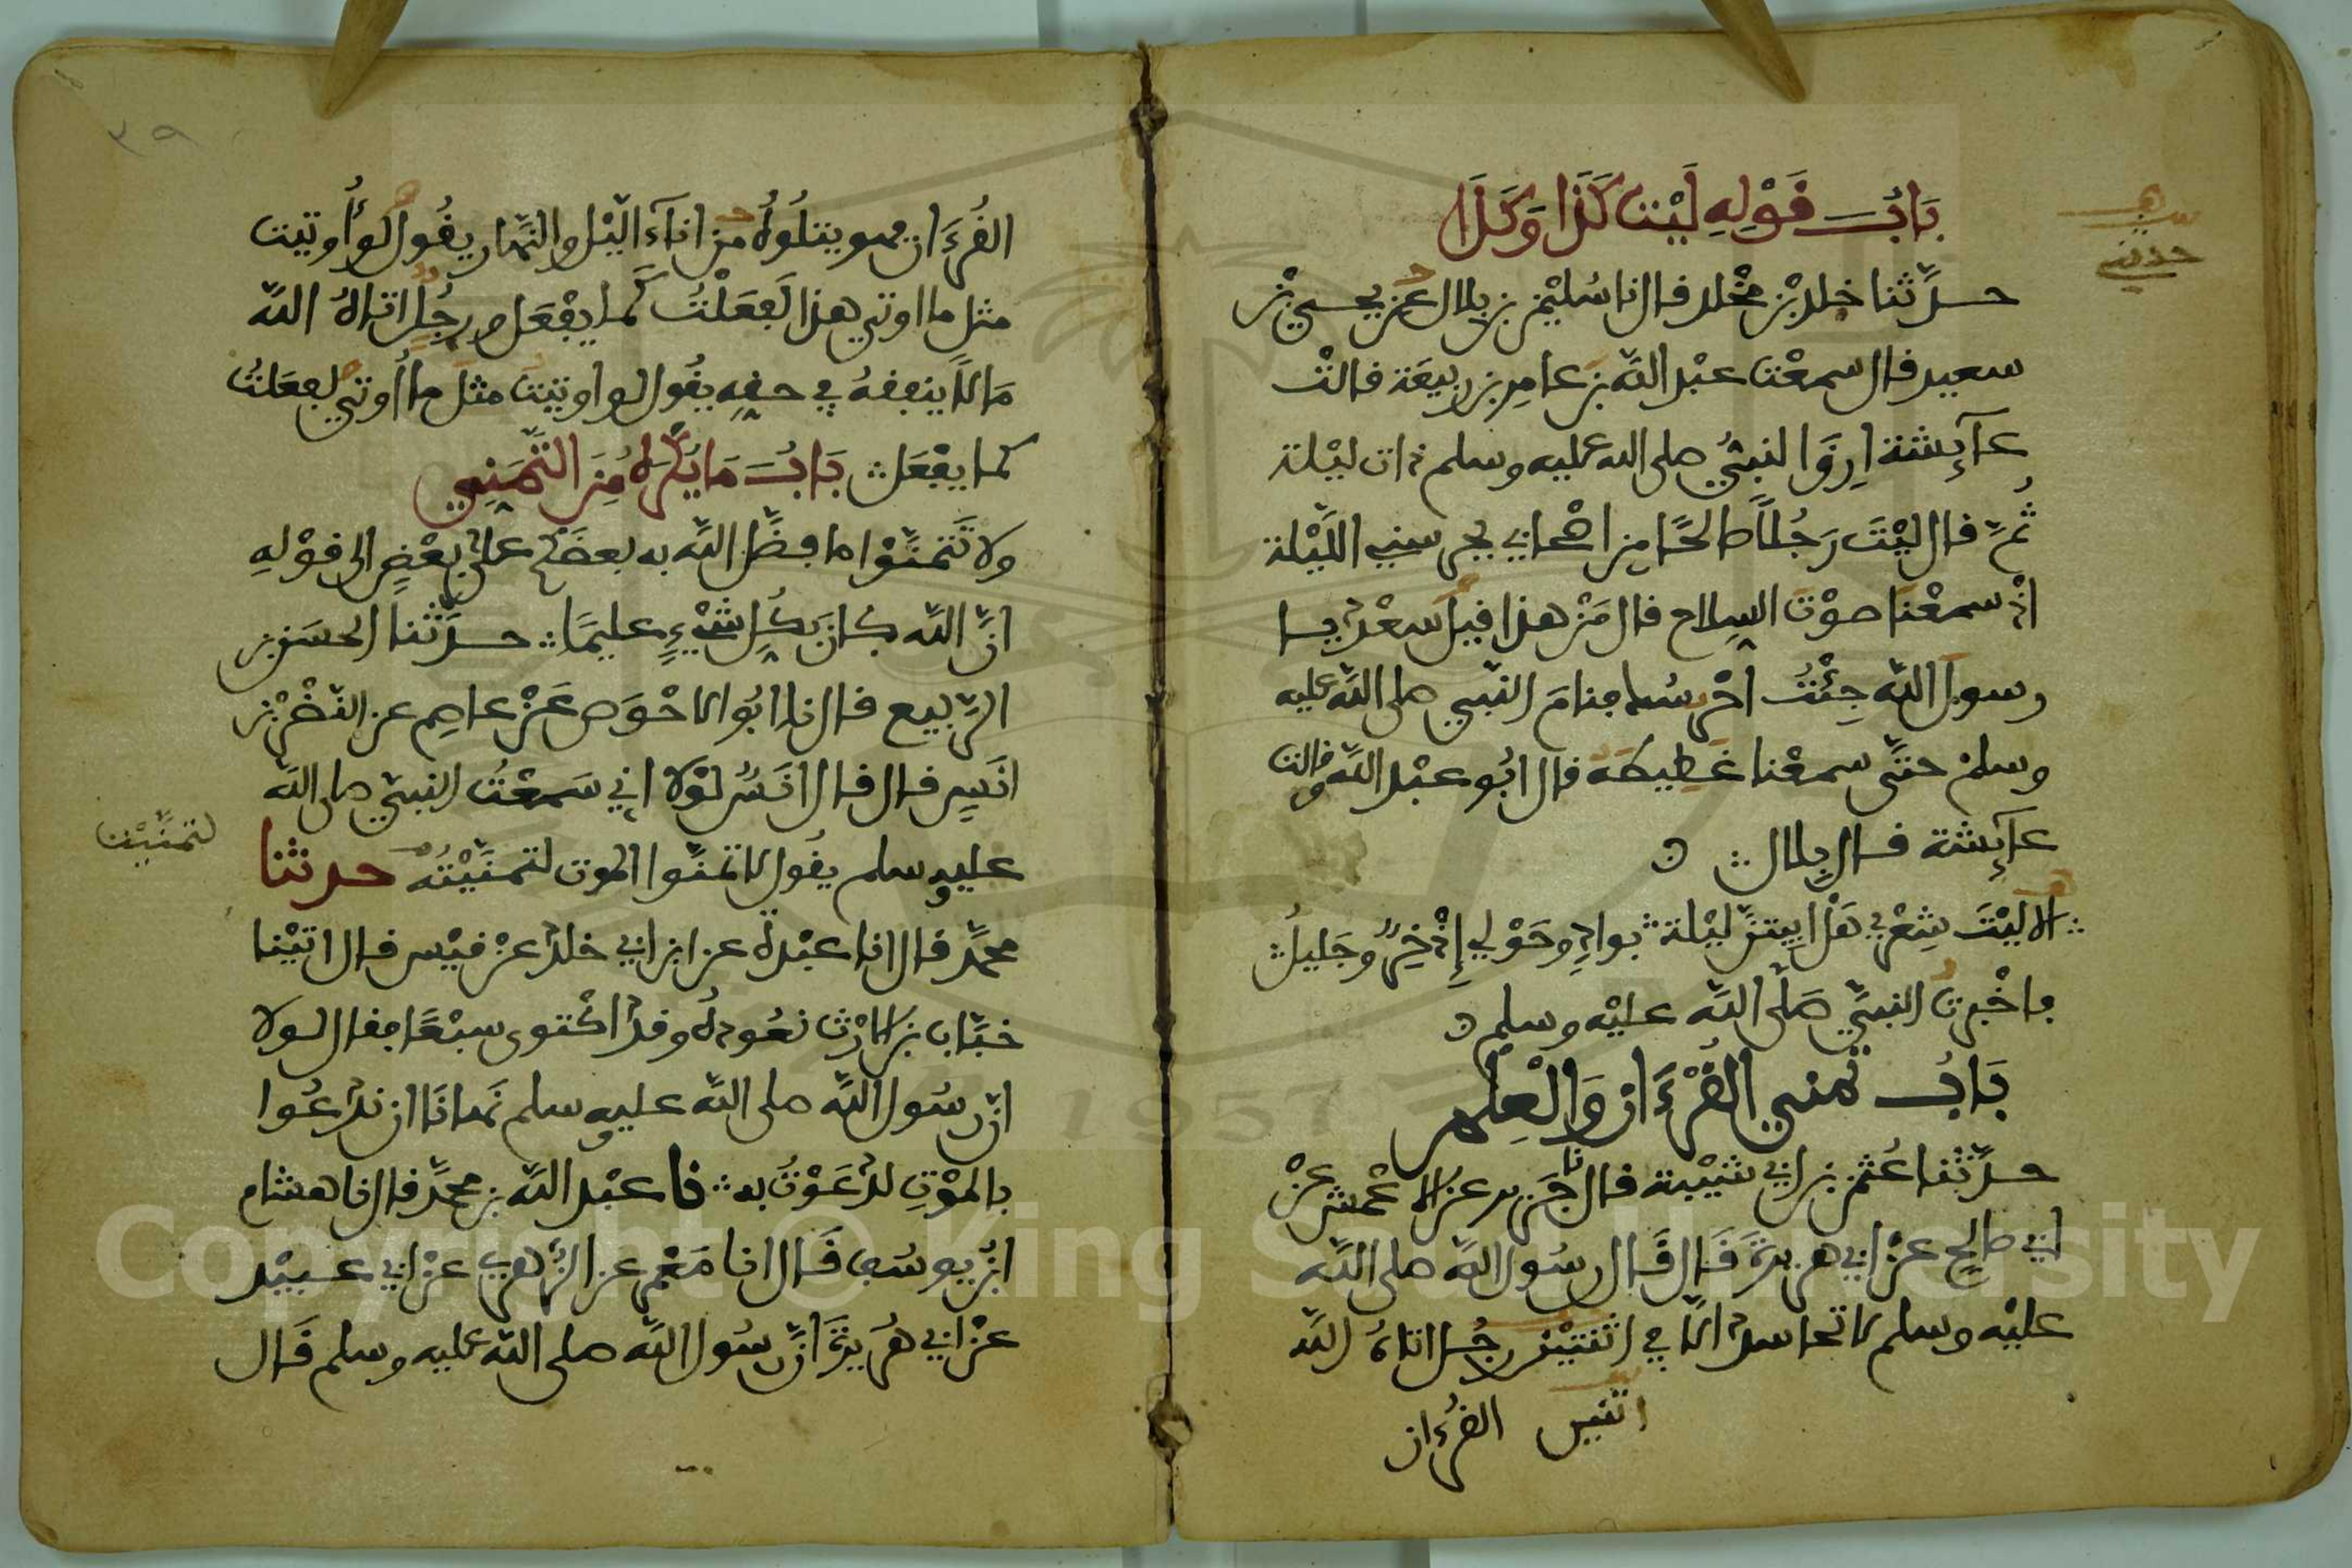 باب قوله ليت كذا وكذا
حدثني
حدثنا خلد بن مخلد قال نا سليمن بن بلال عن يحيى بن
سعيد قال سمعت عبد الله بن عامر بن ربيعة قالت
عآئشة ارق النبي صلى الله عليه وسلم ذات ليلة
ثم قال ليت رجلا صالحا من اصحابي يحرسني الليلة
اذ سمعنا صوت السلاح قال من هذا قيل سعد يا
رسول الله جئت احرسك فنام النبي صلى الله عليه
وسلم حتى سمعنا غطيطه قال ابو عبد الله وقالت
عآئشة قال بلال
الا ليت شعري هل ابيتن ليلة بواد وحولي إذخر وجليل
فاخبرت النبي صلى الله عليه وسلم
باب تمني القرءان والعلم
حدثنا عثمن بن ابي شيبة قال نا جرير عن الاعمش عن
ابي صالح عن ابي هريرة قال قال رسول الله صلى الله
عليه وسلم لا تحاسد الا في اثنتين رجل اتاه الله
اثنين القرءان
٣٩
القرءان فهو يتلوه من اناء اليل والنهار يقول لو أوتيت
مثل ما اوتي هذا لفعلت كما يفعل ورجل اتاه الله
مالا ينفقه في حقه يقول لو اوتيت مثل ما أوتي لفعلت
كما يفعل باب ما يكره من التمني
ولا تتمنوا ما فضل الله به بعضكم على بعض الى قوله
ان الله كان بكل شيء عليما حدثنا الحسن بن
الربيع قال نا ابو الاحوص عن عاصم عن النضر بن
انس قال قال انس لولا اني سمعت النبي صلى الله
عليه وسلم يقول لا تمنوا الموت لتمنيته حدثنا
لتمنيت
محمد قال انا عبدة عن ابن ابي خلد عن قيس قال اتينا
خباب بن الارث نعوده وقد اكتوى سبعا فقال لولا
ان رسول الله صلى الله عليه وسلم نهانا ان ندعوا
بالموت لدعوت به نا عبد الله بن محمد قال نا هشام
ابن يوسف قال انا معمر عن الزهري عن ابي عبيد
عن ابي هريرة ان رسول الله صلى الله عليه وسلم قال
Copyright © King Saud University
1957